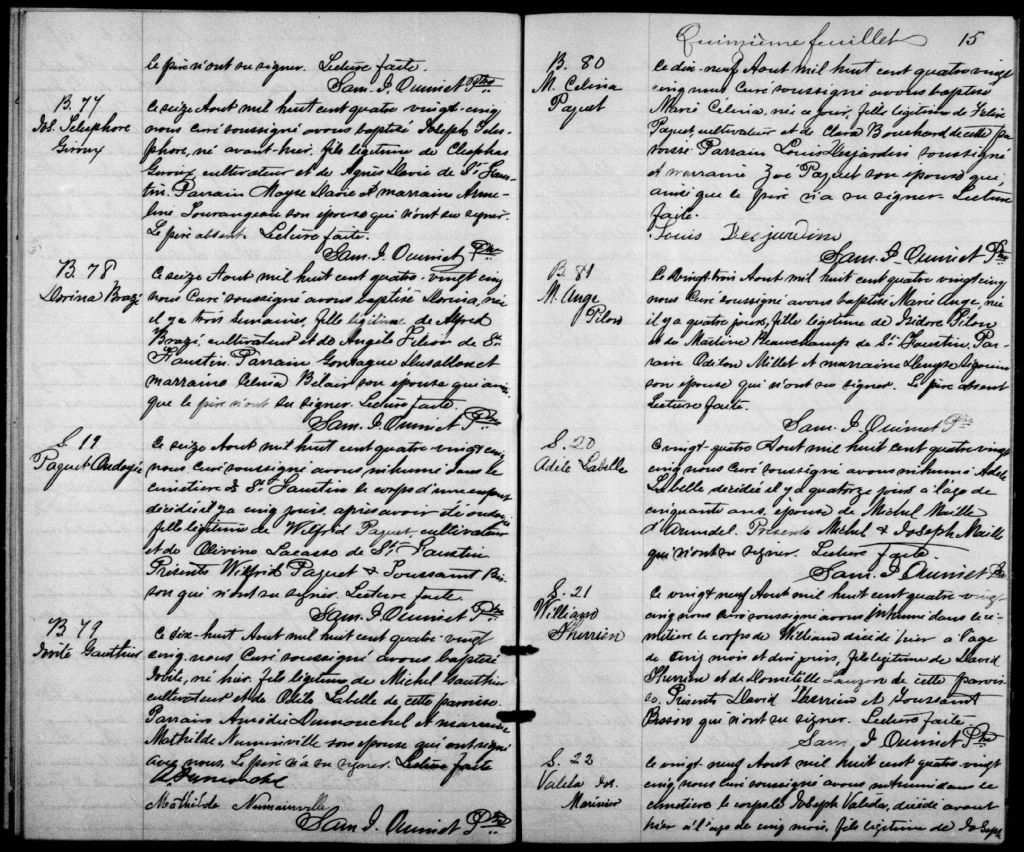 le père n'ont su signer. Lecture faite.
Sam. J. Ouimet Ptre
B. 77
Jos. Telesphore
Giroux
Le seize Aout mil huit cent quatre vingt-cinq
nous Curé soussigné avons baptisé Joseph Teles-
phore, né avant-hier, fils légitime de Cleophas
Giroux cultivateur et de Agnès Davie de St. Faus-
tin. Parrain Moyse Davie et marraine Arme-
line Tourangeau son épouse qui n'ont su signer.
Le père absent. Lecture faite.
Sam. J. Ouimet Ptre
B. 78
Dorina Brazé
Le seize Aout mil huit cent quatre-vingt cinq
nous Curé soussigné avons baptisé Dorina, née
il y a trois semaines, fille légitime de Alfred
Brazé, cultivateur et de Angèle Filion de St.
Faustin. Parrain Gonzague et
marraine Celina Belair son épouse qui ainsi
que le père n'ont su signer. Lecture faite.
Sam. J. Ouimet Ptre
S. 19
Paquet Ondoyée
Le seize Aout mil huit cent quatre vingt cinq
nous Curé soussigné avons inhumé dans le
cimetière de St. Faustin le corps d'une enfant
décédée il y a cinq jours, après avoir été ondoyée
fille légitime de Wilfred Paquet, cultivateur
et de Olivine Lacasse de St. Faustin
Présents Wilfrid Paquet & Toussaint Bis-
son qui n'ont su signer. Lecture faite.
Sam. J. Ouimet Ptre
B 79
Jovite Gauthier
Le dix-huit Aout mil huit cent quatre-vingt
cinq, nous Curé soussigné avons baptisé
Jovite, né hier, fils légitime de Michel Gauthier
cultivateur et de Odile Labelle de cette paroisse.
Parrain Amédée Dumouchel et marraine
Mathilde Numainville son épouse qui ont signé
avec nous. Le père n'a su signer. Lecture faite
A Dumouchel
Mathilde Numainville
Sam. J. Ouimet Ptre
Quinzième feuillet 15
B. 80
M. Celina
Paquet
Le dix-neuf Aout mil huit cent quatre vingt
cinq nous Curé soussigné avons baptisé
Marie Célina, née ce jour, fille légitime de Felix
Paquet, cultivateur et de Clara Bouchard de cette pa-
roisse. Parrain Louis Desjardins soussigné
et marraine Zoé Paquet son épouse qui,
ainsi que le père n'a su signer. Lecture
faite.
Louis Desjardins
Sam. J. Ouimet Ptre
B. 81
M. Ange
Pilon
Le vingt trois Aout mil huit cent quatre vingt cinq
nous Curé soussigné avons baptisé Marie Ange, née
il y a quatre jours, fille légitime de Isidore Pilon
et de Martine Beauchamp de St. Faustin. Par-
rain Odilon Millet et marraine
son épouse qui n'ont su signer. Le père absent
Lecture faite.
Sam. J. Ouimet Ptre
S. 20
Adèle Labelle
Le vingt-quatre Aout mil huit cent quatre vingt
cinq nous Curé soussigné avons inhumé Adèle
Labelle décédée il y a quatorze jours à l'âge de
cinquante ans, épouse de Michel Maille
d'Arundel. Présents Michel & Joseph Maille
qui n'ont su signer. Lecture faite.
Sam. J. Ouimet Ptre
S. 21
William
Therrien
Le vingt neuf Aout mil huit cent quatre vingt
cinq nous Curé soussigné avons inhumé dans le ci-
metière le corps de William décédé hier à l'âge
de cinq mois et dix jours, fils légitime de David
Therrien et de Domitille Lauzon de cette parois-
se. Présents David Therrien et Toussaint
Bisson qui n'ont su signer. Lecture faite.
Sam. J. Ouimet Ptre
S. 22
Valeda Jos.
Marinier
Le vingt neuf Aout mil huit cent quatre vingt
cinq, nous Curé soussigné avons inhumé dans ce
cimetière le corps de Joseph Valeda, décédé avant
hier à l'âge de cinq mois, fils légitime de Joseph